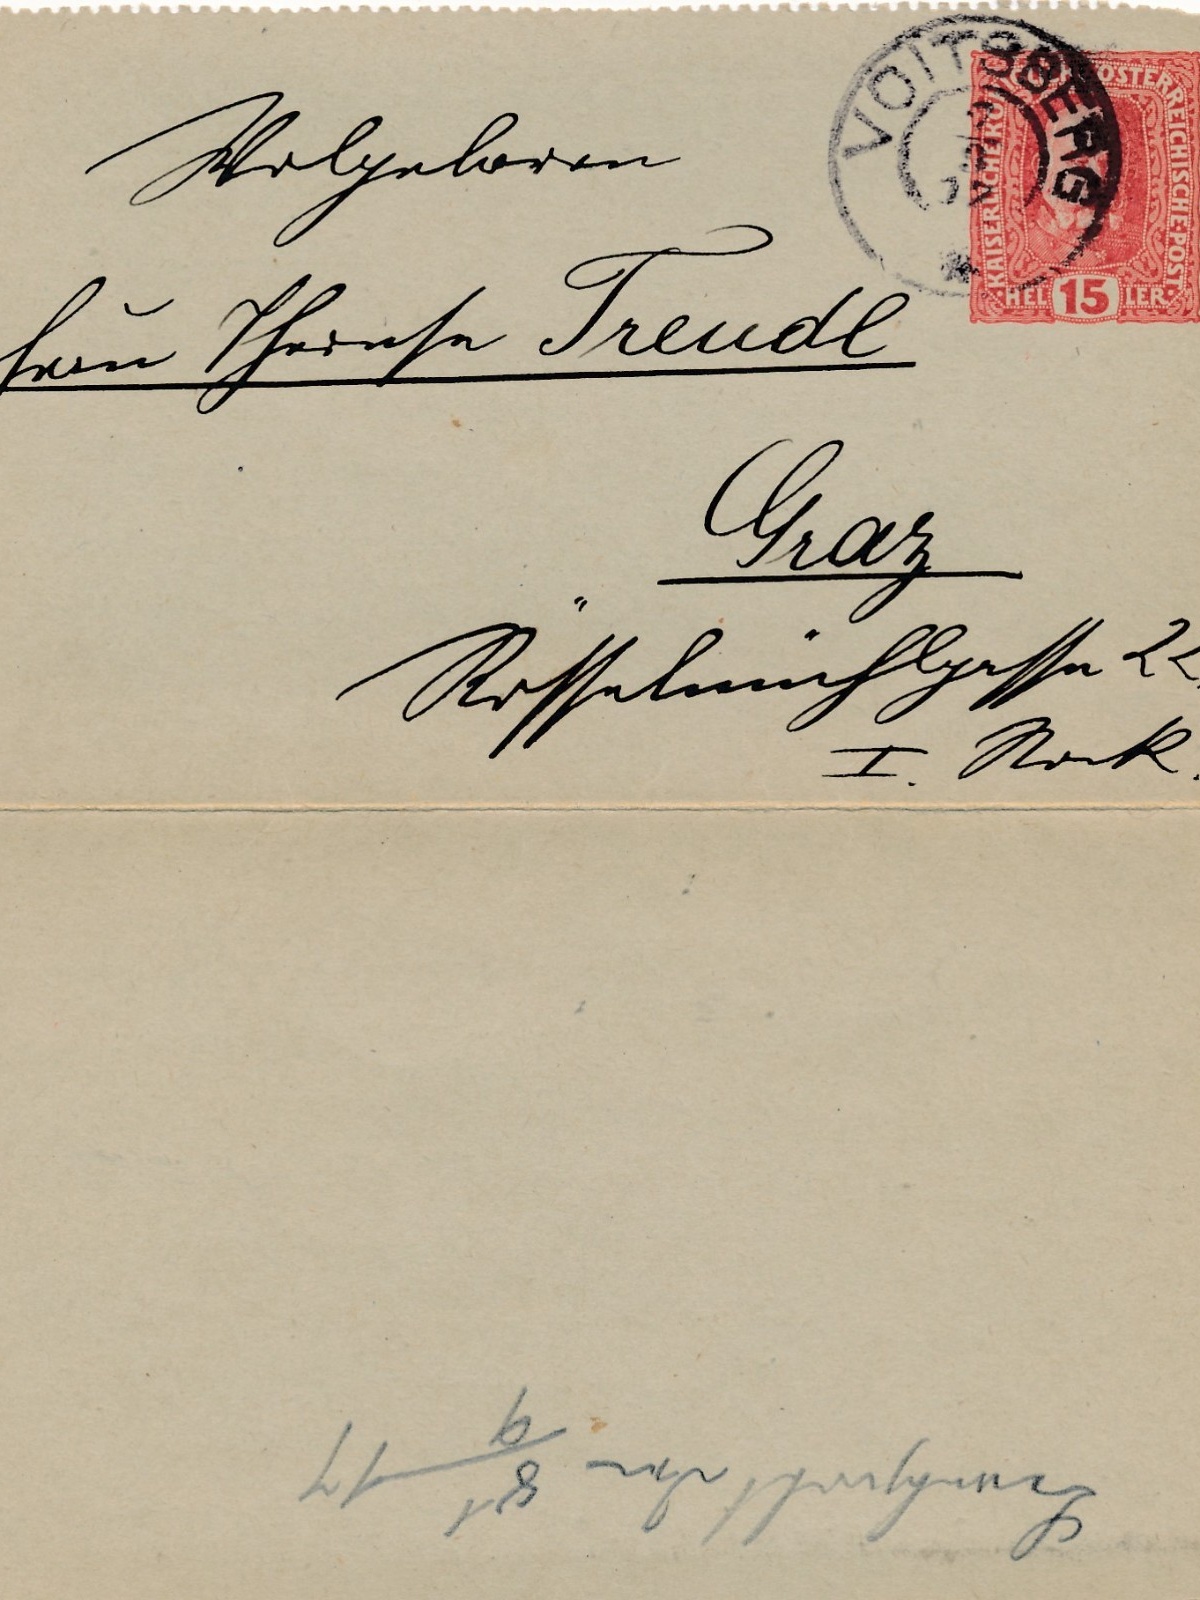 VOITSBERG
KAISERLICHE KÖNIGL. ÖSTERREICHISCHE POST
15 HELLER
Wolgeboren
Frau Therese Treudl
Graz
Rösselmühlgasse 22,
I. Stock.
18/9 17